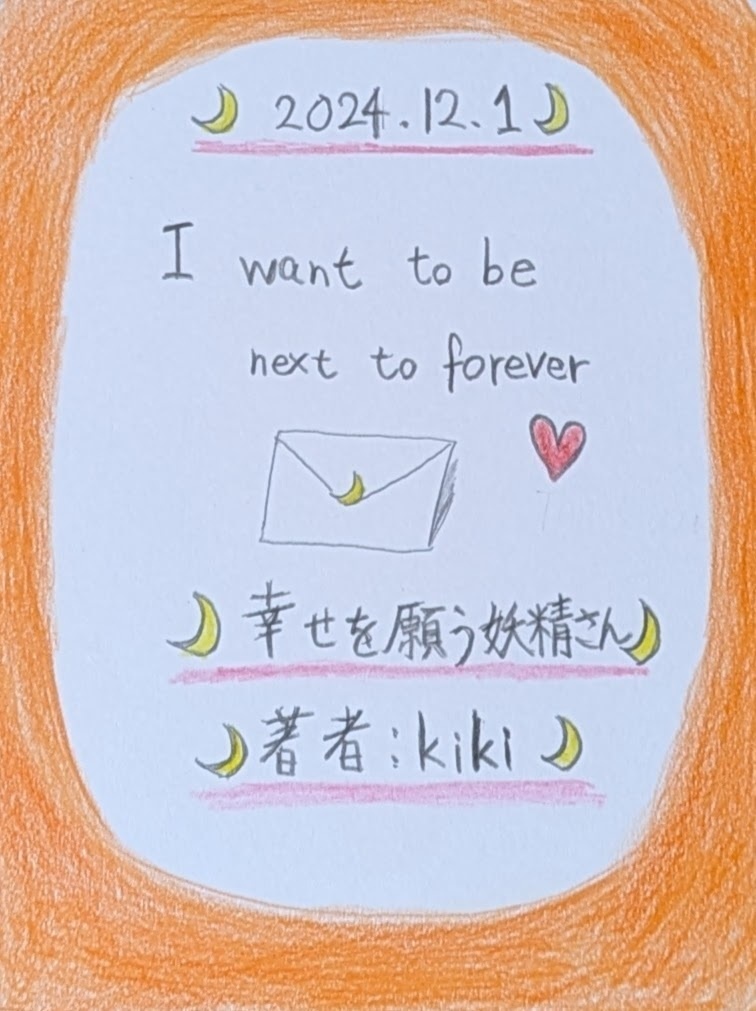 2024.12.1
I want to be
next to forever
幸せを願う妖精さん
著者:kiki